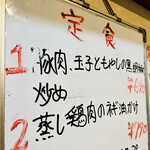 定食
1. 豚肉、玉子ともやしの黒胡椒
炒め
2. 蒸し鶏肉のネギ油かけ